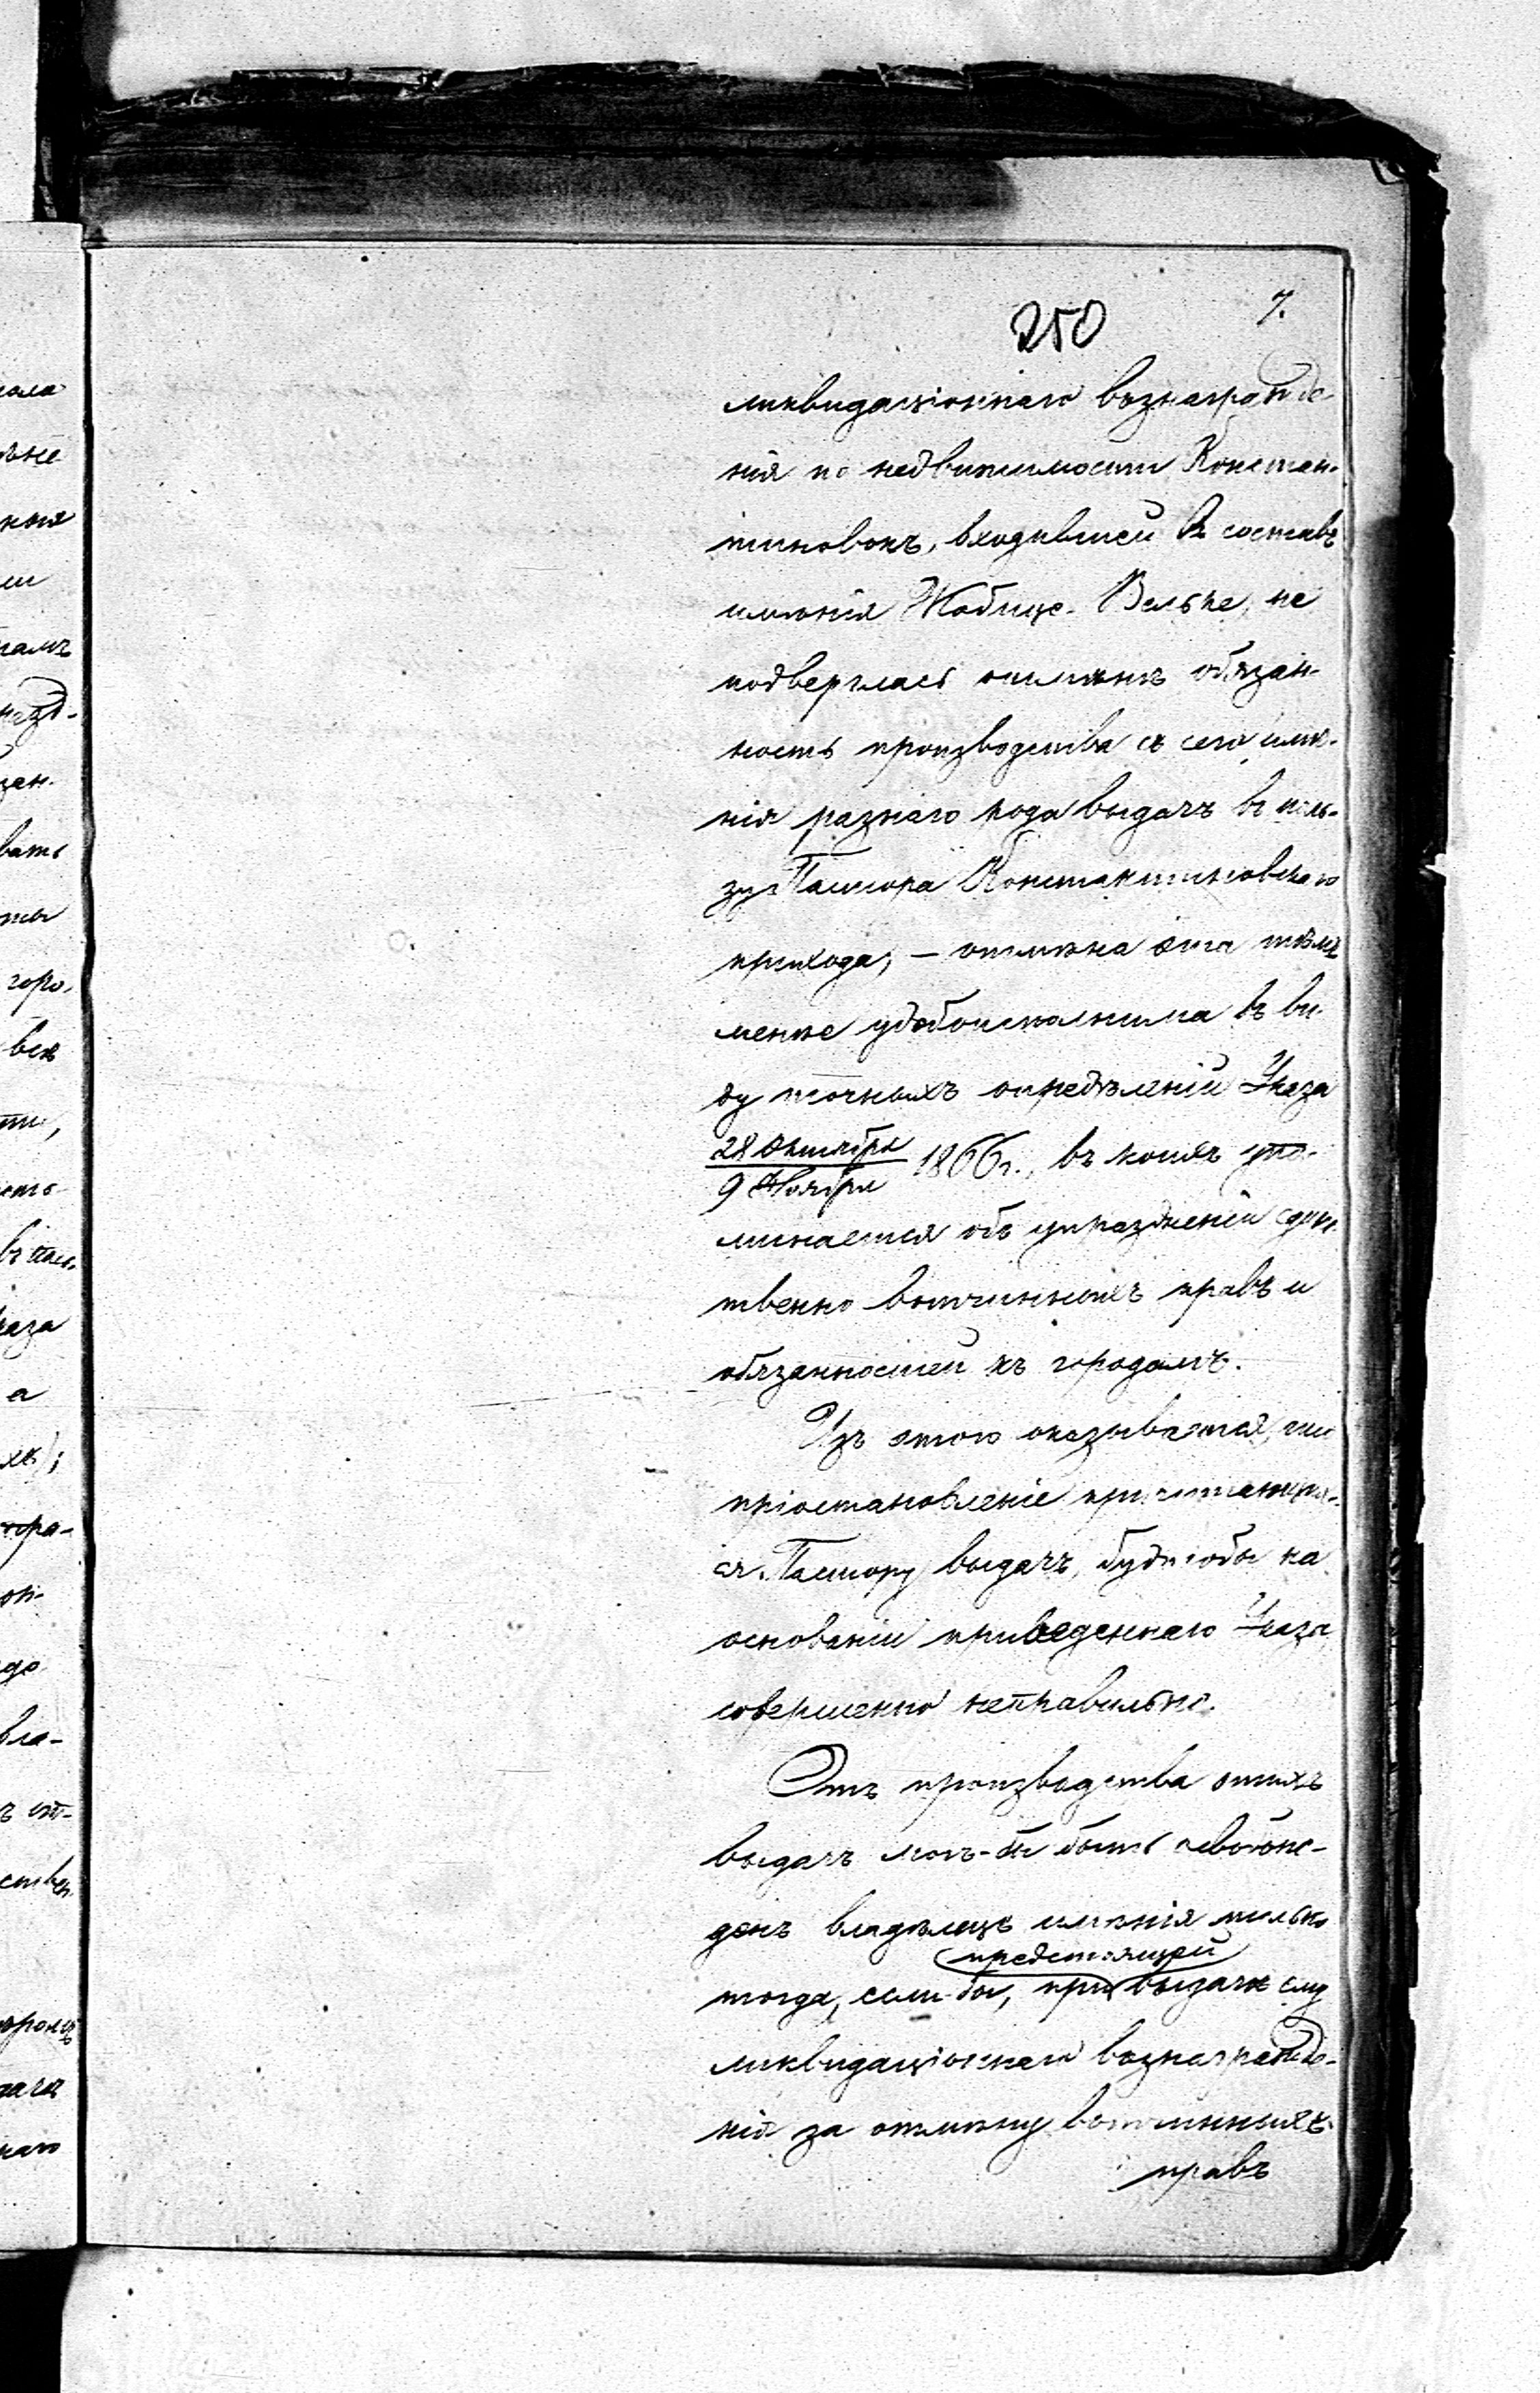 250
7.
ликвидаціоннаго вознагражде-
нія по недвижимости Констан-
тиновокъ, входившей въ составъ
имѣнія Жабице-Вельке, не
подверглась отмѣнѣ обязан-
ность производства съ сего имѣ-
нія разнаго рода выдачъ въ поль-
зу Пастора Константиновскаго
прихода, — отмѣна эта тѣмъ
менѣе удобоисполнима въ ви-
ду точныхъ опредѣленій Указа
28 Октября / 9 Ноября 1866 г., въ коихъ упо-
минается объ упраздненіи един-
ственно вотчинныхъ правъ и
обязанностей къ городамъ.
Изъ этого оказывается, что
пріостановленіе причитающих-
ся Пастору выдачъ, будто бы на
основаніи приведеннаго Указа
совершенно неправильно.
Отъ производства этихъ
выдачъ могъ-бы быть освобож-
денъ владѣлецъ имѣнія только
предстоящей
тогда, если-бы, при выдачѣ ему
ликвидаціоннаго вознагражде-
нія за отмѣну вотчинныхъ
правъ